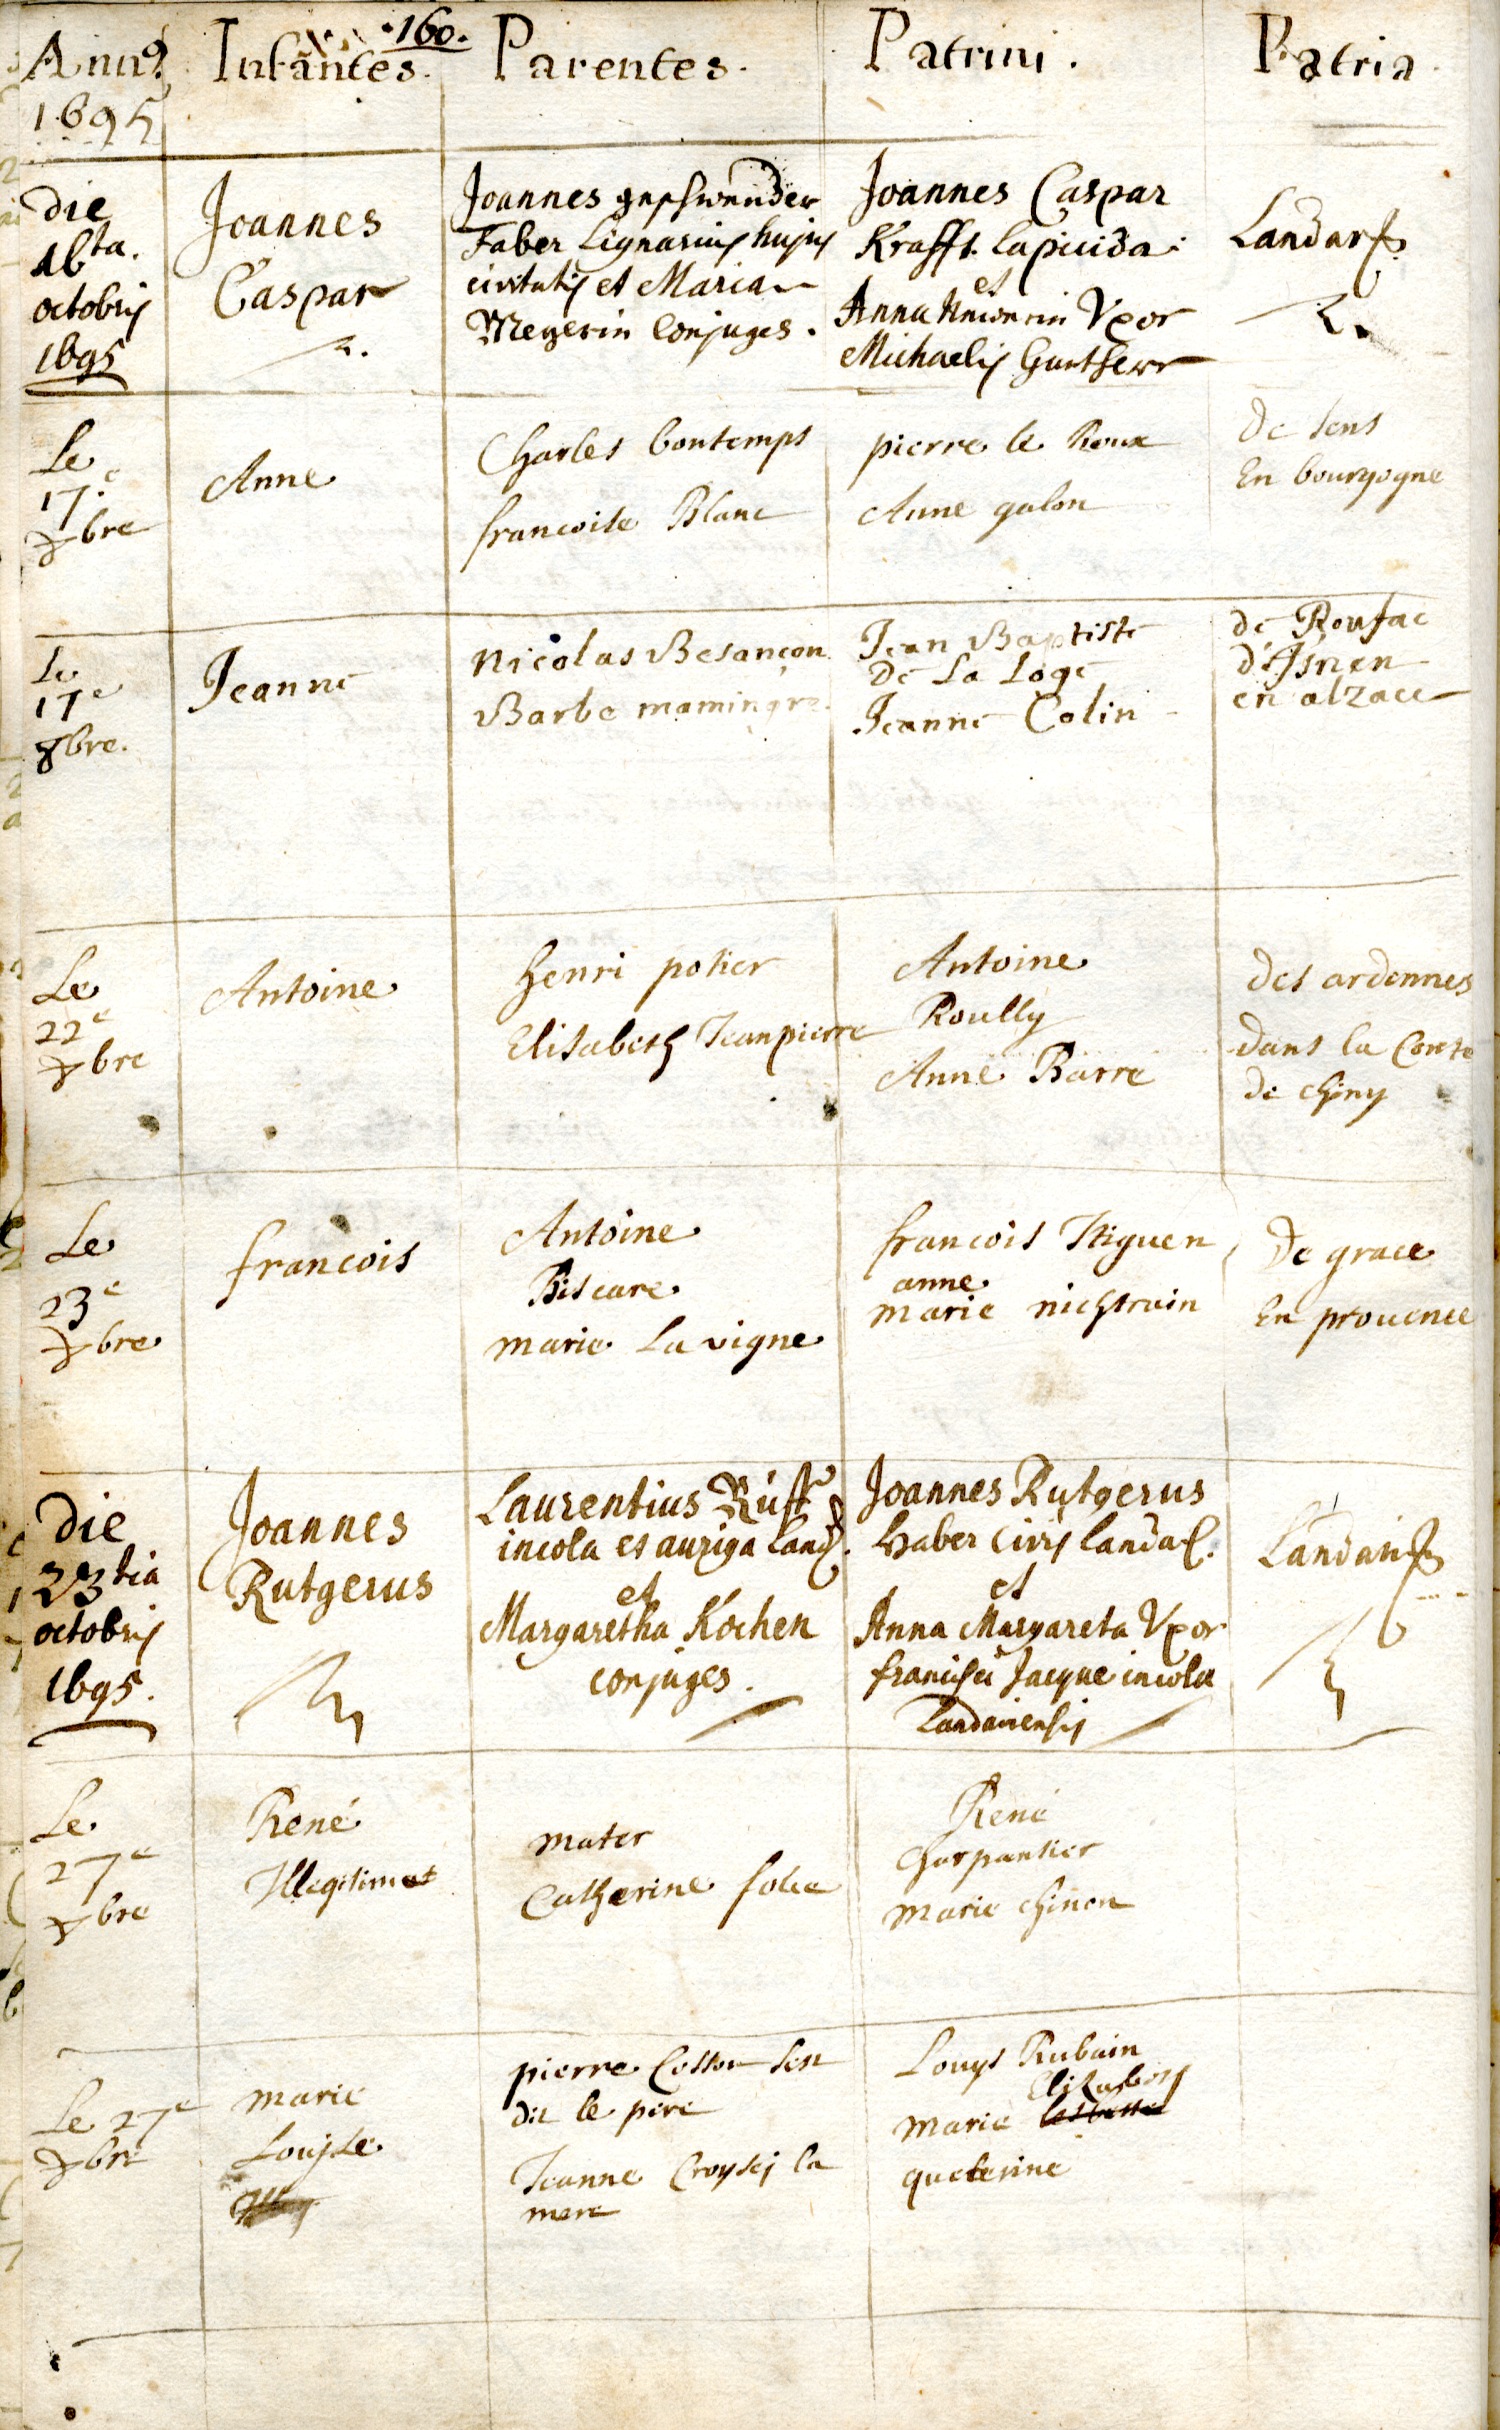 160.
Anno 1695
Infantes.
Parentes.
Patrini.
Patria.
die
16ta.
octobris
1695
Joannes
Caspar
Joannes gschwender
Faber Lignarius hujus
civitatis et Maria
Meyerin Conjuges.
Joannes Caspar
Krafft. Lapicida.
et
Anna Vxor
Michaelis
Le
17.e
8bre
Anne
Charles bontemps
francoise Blanc
pierre le Roux
Anne galon
De sens
En bourgogne
Le
17e
8bre.
Jeanne
Nicolas Besançon
Barbe
Jean Baptiste
De La Loge
Jeanne Colin
de Roufac
en alzace
Le
22e
8bre
Antoine
henri potier
Elisabeth Jeanpierre
Antoine
Roully
Anne Barre
des ardennes
dans la Conte
de chiny
Le
23e
8bre
francois
Antoine
Biscare
marie La vigne
francois
anne
marie nichtrain
De grace
En prouence
die
23tia
octobris
1695.
Joannes
Rutgerus
Laurentius Rüff
incola et auriga Land.
et
Margaretha Kochen
conjuges.
Joannes Rutgerus
Haber Civis landa.
et
Anna Margareta Vxor
francisci Jacque incola
Landaviensis
Le
27e
8bre
René
Illegitimus
mater
Catherine folie
René
Charpantier
Marie chinon
Le 27e
8bre
marie
Louyse
pierre
dit le pere
Jeanne la
mere
Louys Rubain
Elizabeth
Marie
queterine